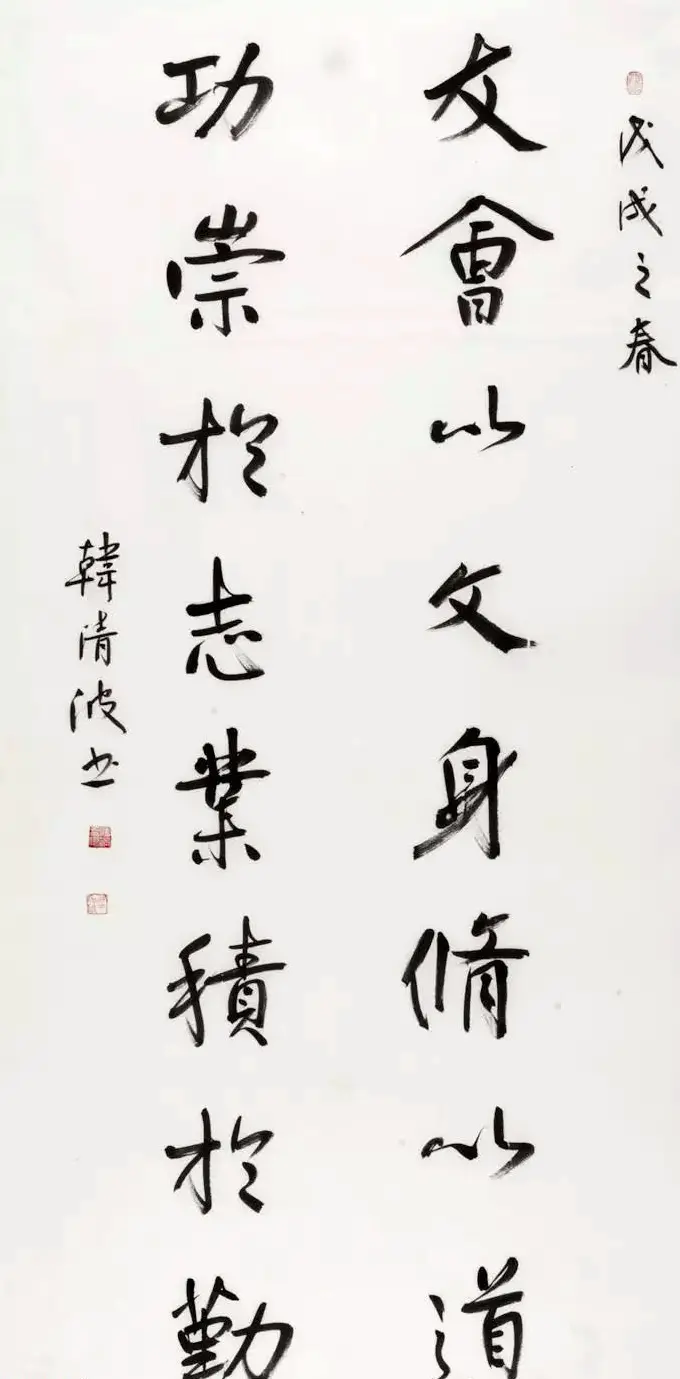 戊戌之春
友會以文身脩以道
功崇於志業積於勤
韓清波书